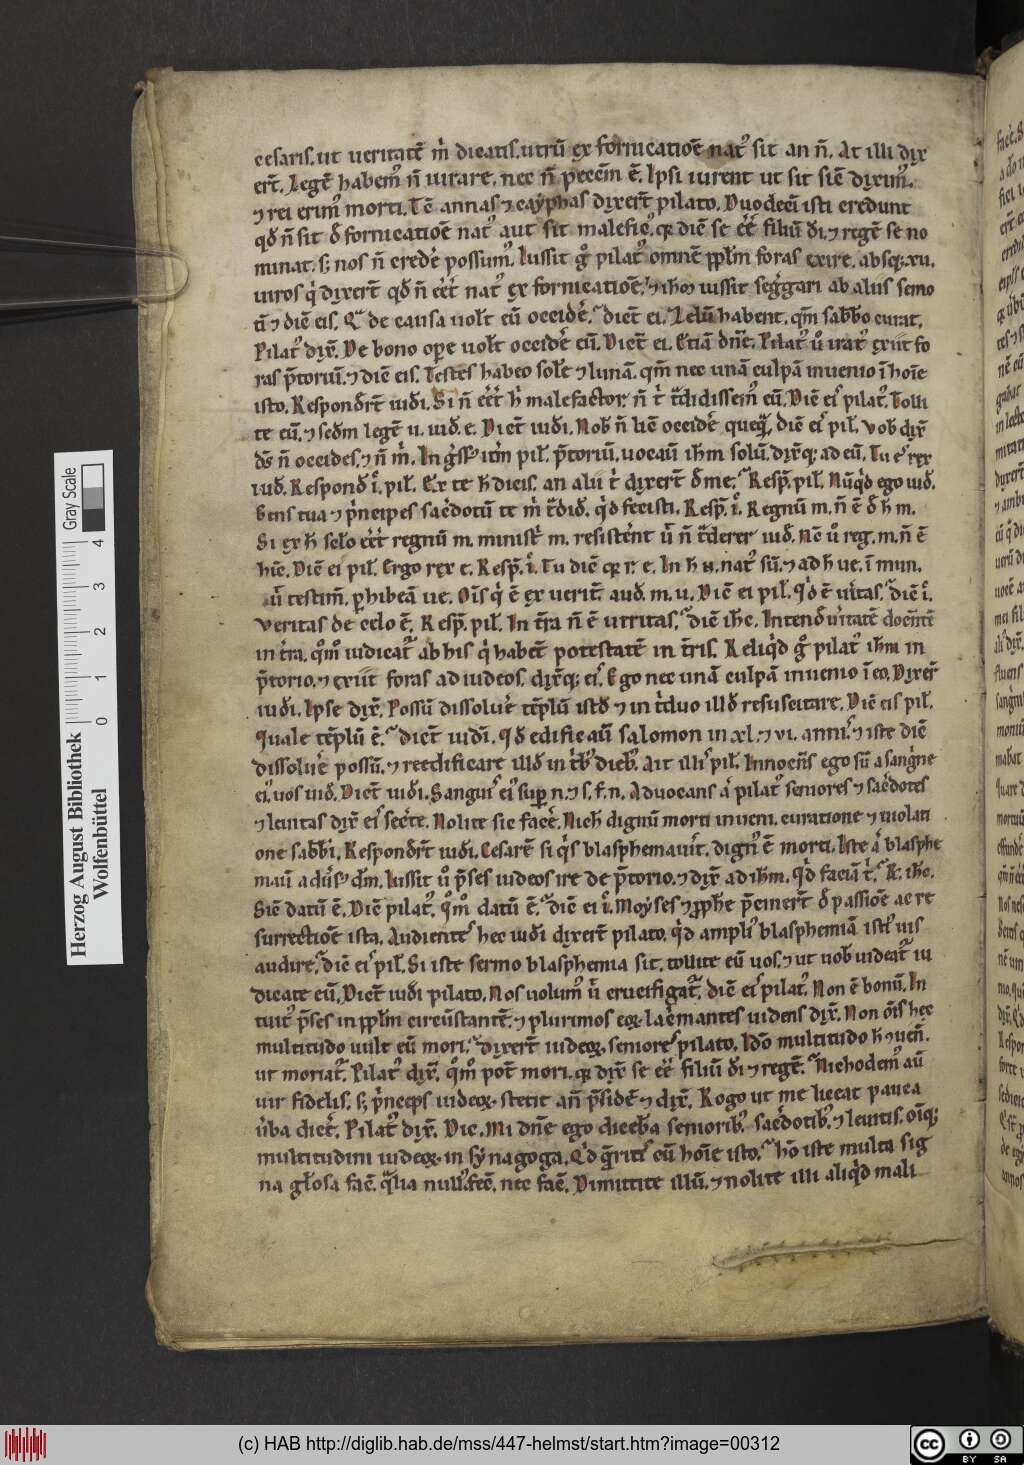 cesaris. ut ueritatē m̄ dicatis. utrū ex fornicatiōe nat᷒ sit an n̄. At illi dix
ert̄. Legē habem᷒ n̄ iurare. nec n̄ peccm̄ ē. Ipsi iurent ut sit sic̄ dixim᷒.
⁊ rei erim᷒ morti. Tc̄ annas ⁊ cayphas dixert̄ pilato. Duodeci isti credunt
qd̄ n̄ sit d̄ fornicatiōe nat᷒ aut sit malefic᷒. q; dic̄ se ee̅ filiū di̅. ⁊ regē se no
minat. s; nos n̄ crede̅ possum᷒. Iussit g̊ pilat᷒ omnē pplm̄ foras exire. absq; xii.
uiros q̍ dixert̄ qd̄ n̄ eēt nat᷒ ex fornicatiōe. ⁊ ihm̄ iussit seggari ab aliis semo
ti ⁊ dic̄ eis. Q̄ de causa uolt̄ eū occide̅. dict̄ ei. Zelū habent. qm̄ sabbo curat.
Pilat᷒ dix̄. De bono ope uolt̄ occide̅ eū. Dict̄ ei. Etiā dn̄e. Pilat᷒ u̅ irat᷒ exiit fo
ras p̄toriū. ⁊ dic̄ eis. Testes habeo sole̅ ⁊ lunā. qm̄ nec unā culpā inuenio ī hoīe
isto. Respondrt̄ iudi̅. Si n̄ eēt h̍ malefactor. n̄ t̍ t̄didissem᷒ eū. Dic̄ eis pilat᷒. Tolli
te eū. ⁊ sedm̄ legē u. iud̄. e. Dict̄ iudi̅. Nob̄ n̄ lic̄ occide̅ quēq̄. dic̄ eis pil̄. Vob̄ dix̄
ds̄ n̄ occides. ⁊ n̄ m̍. Ingss᷒ itm̄ pil̄. p̄toriū. uocau̅ ihm̄ solū. dix̄q; ad eū. Tu es rex
iud̄. Respond̄ i̅. pil̄. Ex te h̄ dicis. an alii t̍ dixert̄ d̄ me. Resp̄. pil̄. Nūqd̍ ego iud̄.
Gens tua ⁊ p̍ncipes sacdotū te m̍ t̄did̄. qd̍ fecisti. Resp̄. i̅. Regnū m. n̄ ē d̄ h̄ m.
Si ex h̄ sclo eēt regnū m. minist̍ m. resistent̄ u̅ n̄ t̄derer iud̄. Nc̄ u̅ reg. m. n̄ ē
hic̄. Dic̄ ei pil̄. Ergo rex e. Resp̄. i̅. Tu dic̄ q; r. e. In h̄ n. nat᷒ sū. ⁊ ad h̄ ue. ī mun.
u̅ testim̄. phibeā ue. Oīs q̍ ē ex uerit̄ aud̄. m. u. Dic̄ ei pil̄. Qd̍ ē uītas. dic̄ i̅.
Veritas de celo ē. Resp̄. pil̄. In tr̄a n̄ ē ueritas. dic̄ ihc̄. Intend̄ uītatē docm̄tē
in tr̄a. qm̊ iudicat᷒ ab his q̍ habet̄ potestatē in tr̄is. Reliqd̍ g̊ pilat᷒ ihm̄ in
p̄torio. ⁊ exiit foras ad iudeos. dix̄q; eis. Ego nec unā culpā inuenio ī eo. Dixer̄
iudi̅. Ipse dix̄. Possū dissolue̅ tēplū istd̄ ⁊ in t̍duo illd̄ resuscitare. Dic̄ eis pil̄.
Quale tēplū ē. dict̄ iudi̅. Qd̄ edificauū salomon in xl. ⁊ vi. annis. ⁊ iste dic̄
dissolue̅ possū. ⁊ reedificare illd̄ in t̍b᷒ dieb᷒. Ait illis pil̄. Innocēs ego sū a sangn̍e
ei᷒. uos iud̄. Dict̄ iudi̅. Sanguis ei᷒ sup n. ⁊ s. f. n. Aduocans a̅ pilat᷒ seniores ⁊ sacdotes
⁊ leuitas dix̄ eis secr̄te. Nolite sic face̅. Nich̄ dignū morti inueni. curatione ⁊ uiolati
one sabbi̅. Respondrt̄ iudi̅. Cesarē si q̍s blasphemauit̄. dign᷒ ē morti. Iste a̅ blasphe
mauū adūs᷒ dm̄. Iussit u̅ p̄ses iudeos ire de p̄torio. ⁊ dix̄ ad ihm̄. qd̍ faciā t̍. R̄. ihc̄.
Sic̄ datū ē. Dic̄ pilat᷒. qm̊ datū ē. dic̄ ei i̅. Moyses ⁊ pphe p̄cinert̄ d̄ passiōe ac re
surrectiōe ista. Audientes hec iudi̅ dixert̄ pilato. qd̍ ampli᷒ blasphemiā isti᷒ uis
audire. dic̄ eis pil̄. Si iste sermo blasphemia sit. tollite eū uos. ⁊ ut uob̄ uideat᷒ iu
dicate eū. Dict̄ iudi̅ pilato. Nos uolum᷒ u̅ crucifigat᷒. dic̄ eis pilat᷒. Non ē bonū. In
tuit᷒ p̄ses in pplm̄ circūstantē. ⁊ plurimos eoꝝ lac̍mantes uidens dix̄. Non oīs hec
multitudo uult eū mori. dixert̄ iudeoꝝ seniores pilato. Ido̅ multitudo h̄ uen̄.
ut moriat᷒. Pilat᷒ dix̄. qm̊ pot̄ mori. q; dix̄ se ee̅ filiū di̅ ⁊ regē. Nichodem᷒ aū
uir fidelis. s; p̍nceps iudeoꝝ. stetit an̄ p̄sidē ⁊ dix̄. Rogo ut me liceat pauca
u̅ba dice̅. Pilat᷒ dix̄. Dic. Mi dn̄e ego diceb̄a seniorib᷒ sacdotib᷒ ⁊ leuitis. oīq;
multitudini iudeoꝝ in synagoga. Qd̍ q̄ritis cū hoīe isto. ho̅ iste multa sig
na gl̄osa fac̄. q̄lia null᷒ fec̄. nec fac̄. Dimittite illū. ⁊ nolite illi aliqd̍ mali
Gray Scale
0 1 2 3 4
Herzog August Bibliothek
Wolfenbüttel
(c) HAB http://diglib.hab.de/mss/447-helmst/start.htm?image=00312
cc BY SA